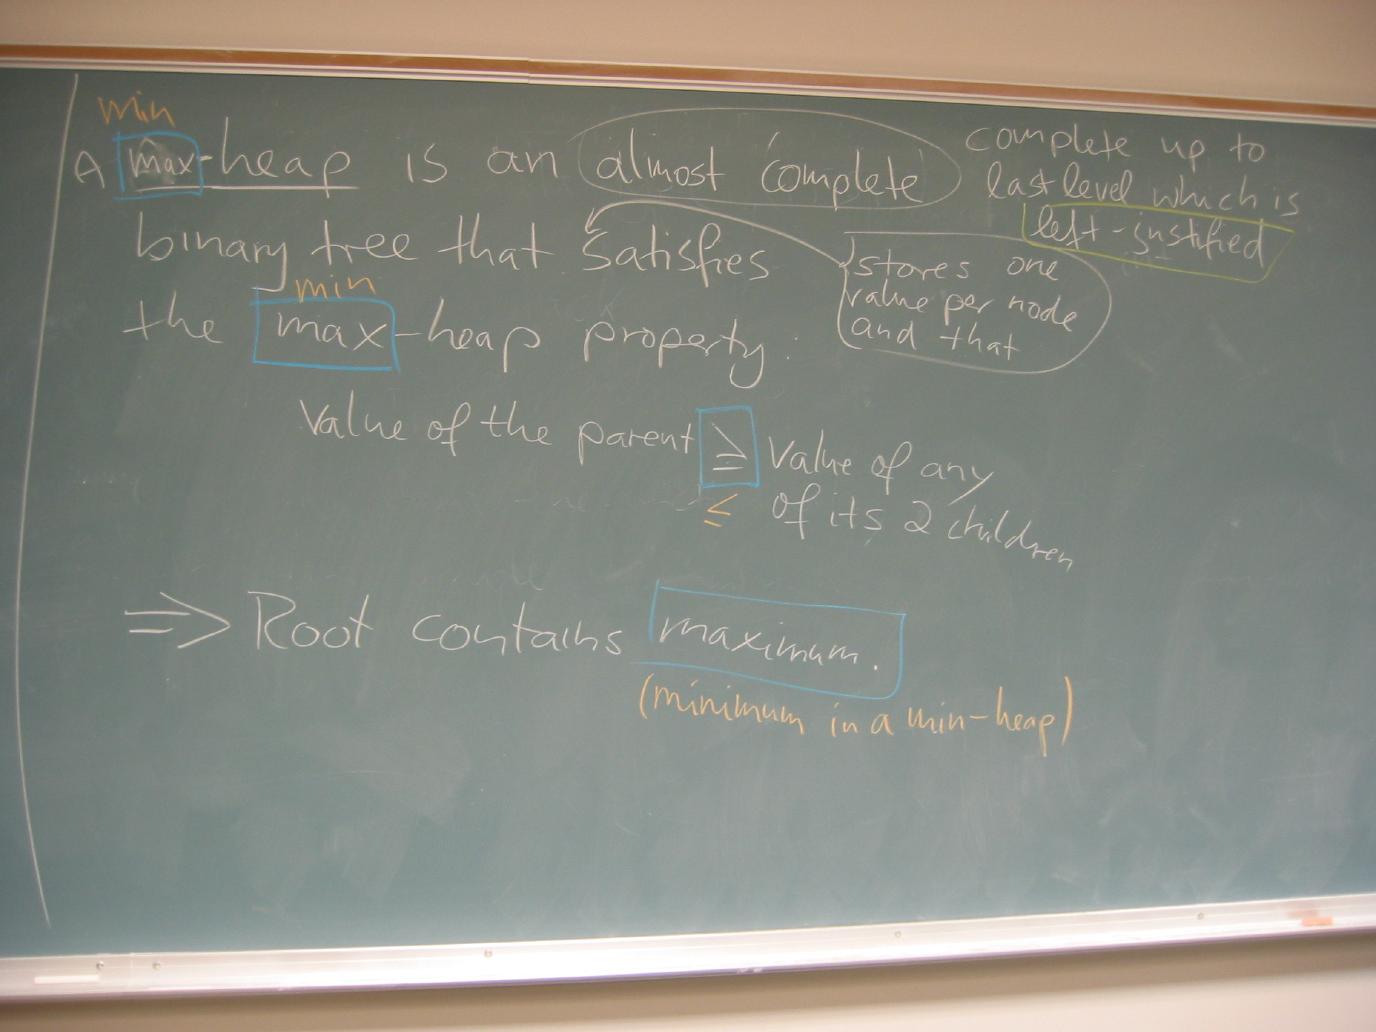 min
A max-heap is an almost complete
complete up to
last level which is
left-justified
binary tree that satisfies
stores one
value per node
and that
min
the max-heap property:
Value of the parent ≥ Value of any
≤ of its 2 children
⇒ Root contains maximum.
(minimum in a min-heap)